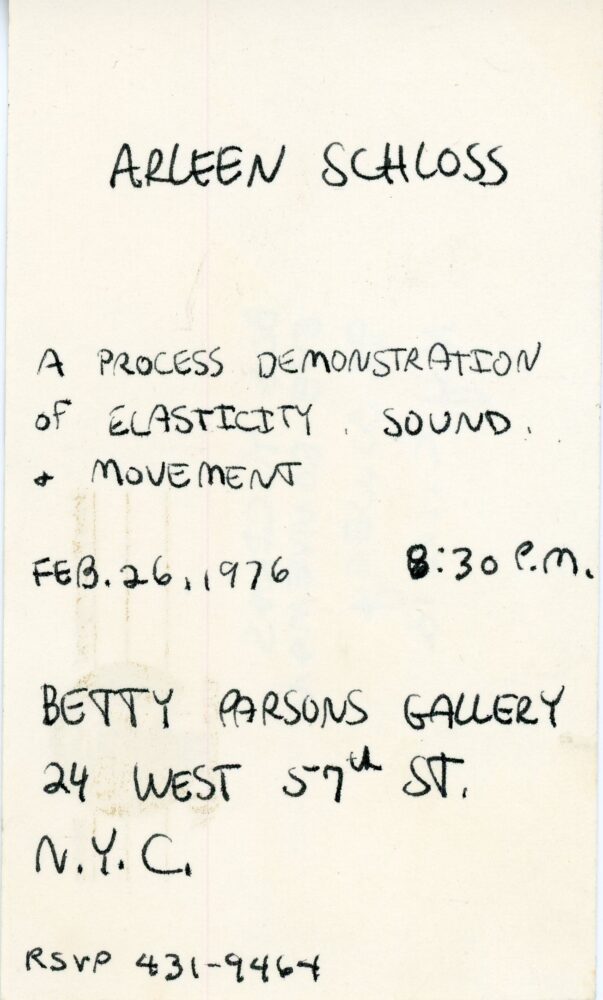 ARLEEN SCHLOSS
A PROCESS DEMONSTRATION
OF ELASTICITY. SOUND.
+ MOVEMENT
FEB. 26, 1976 8:30 P.M.
BETTY PARSONS GALLERY
24 WEST 57th ST.
N.Y.C.
RSVP 431-9464